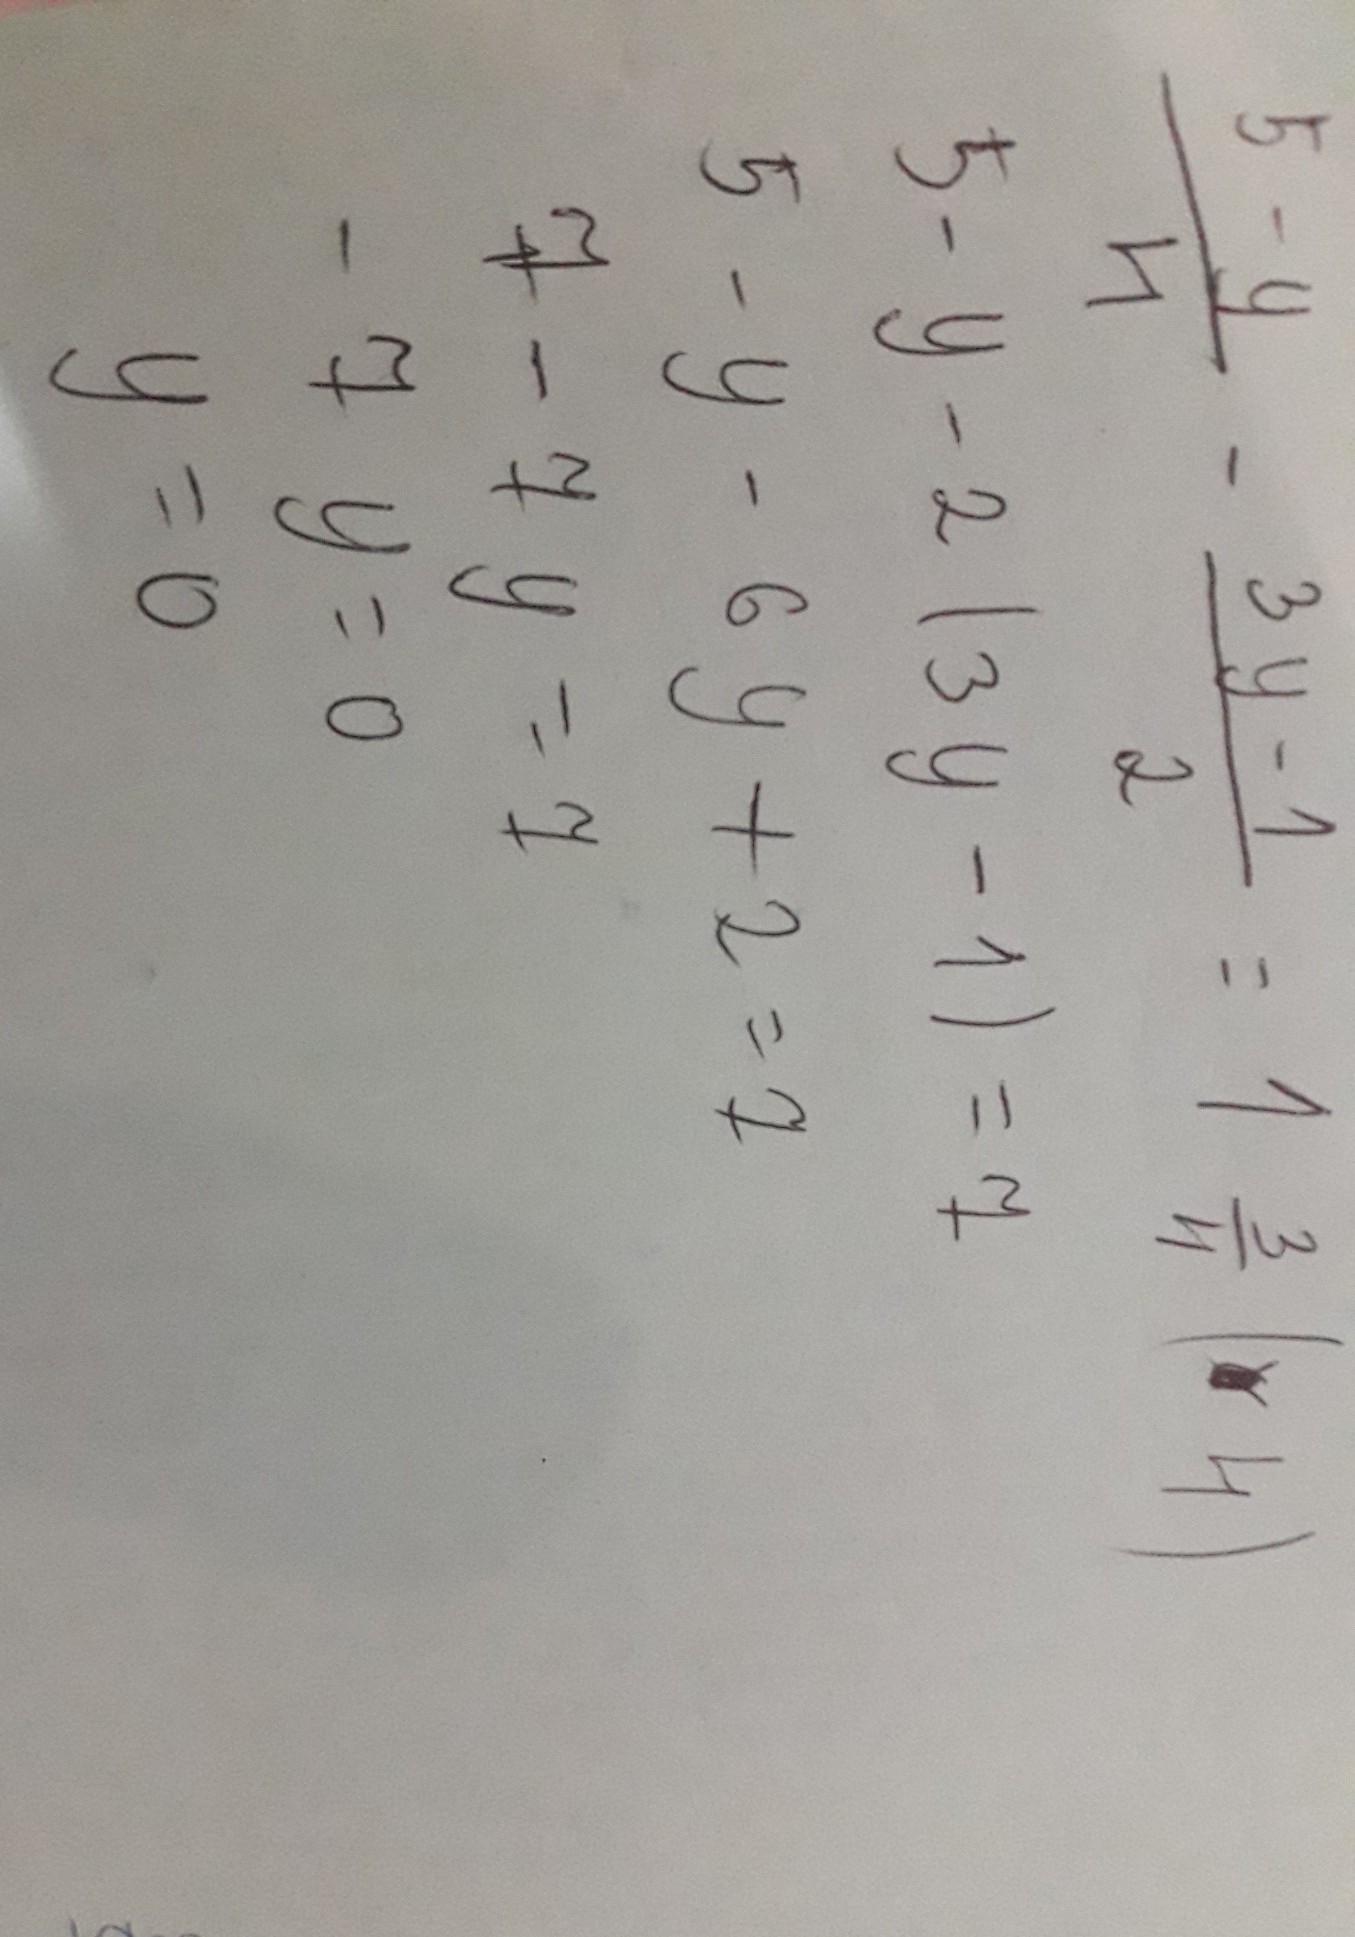 5-y/4 - 3y-1/2 = 1 3/4 (4)
5-y-2(3y-1)=7
5-y-6y+2=7
7-7y=7
-7y=0
y=0